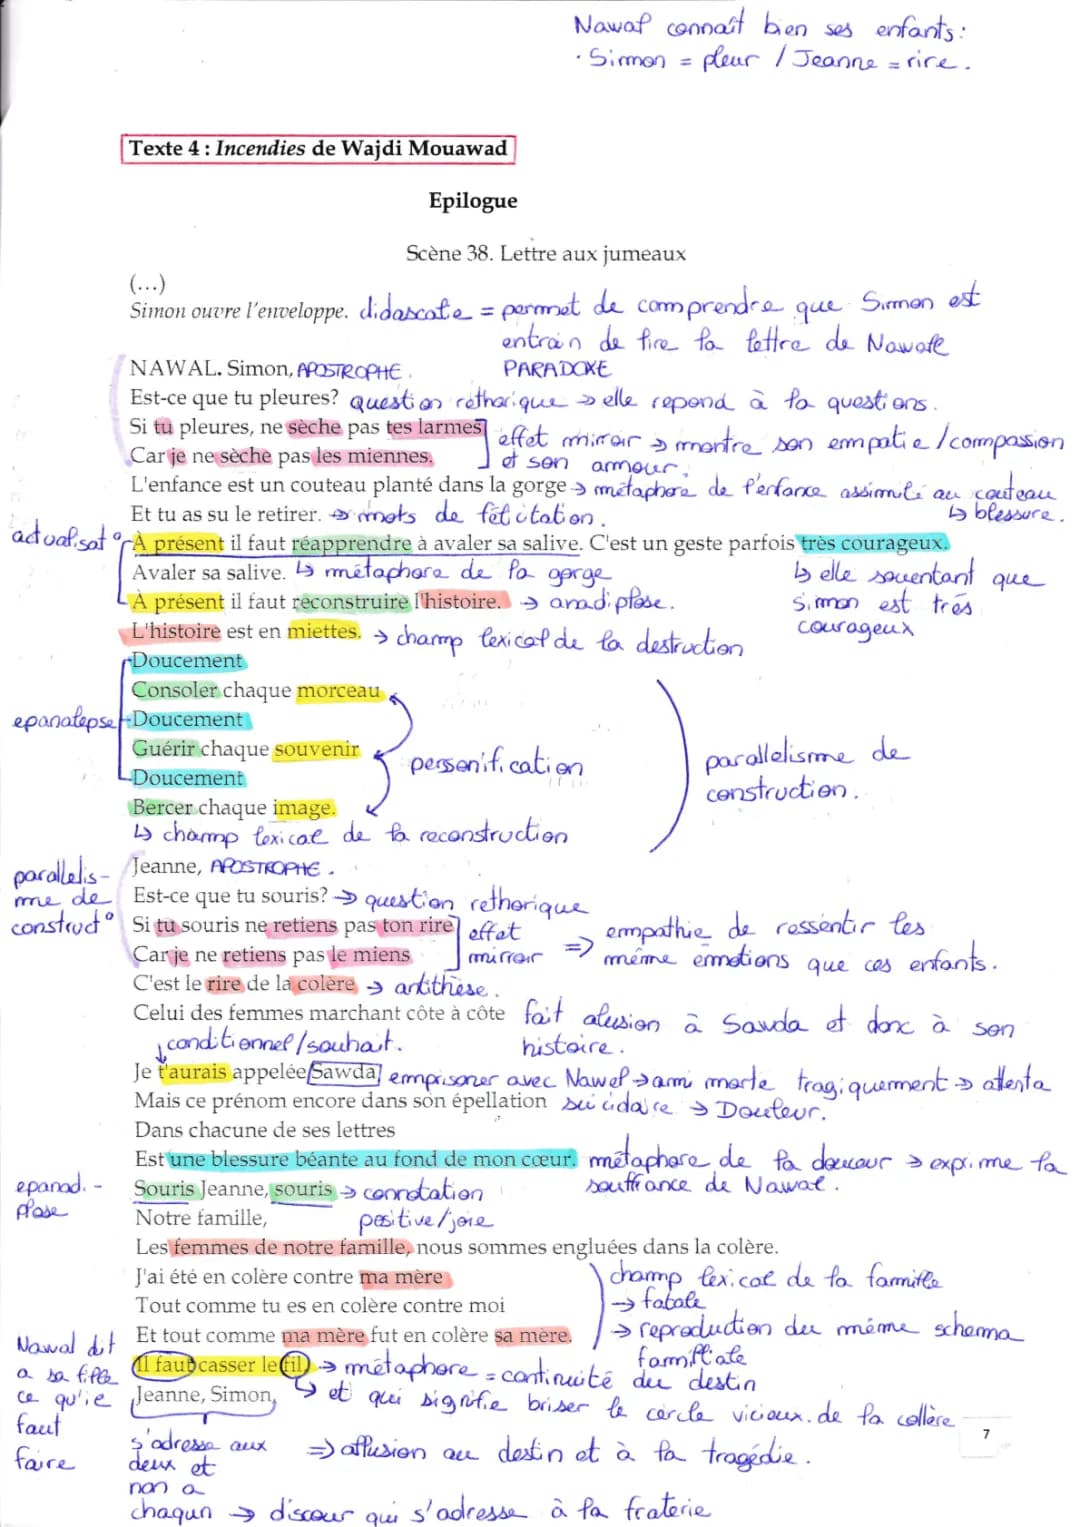 Nawal connaît bien ses enfants:
· Simon = pleur / Jeanne = rire.
Texte 4 : Incendies de Wajdi Mouawad
Epilogue
Scène 38. Lettre aux jumeaux
(...)
Simon ouvre l'enveloppe. didascalie = permet de comprendre que Simon est
entrain de lire la lettre de Nawale
NAWAL. Simon, APOSTROPHE. PARADOXE
Est-ce que tu pleures? question réthorique → elle repond à la questions.
Si tu pleures, ne sèche pas tes larmes
effet mirroir → montre son empatie/compassion
Car je ne sèche pas les miennes.
et son amour.
L'enfance est un couteau planté dans la gorge → métaphore de l'enfance assimulé au couteau
↳ blessure.
Et tu as su le retirer. → mots de félicitation.
actualisat° À présent il faut réapprendre à avaler sa salive. C'est un geste parfois très courageux.
Avaler sa salive. ↳ métaphore de la gorge
↳ elle souentant que
Simon est très
courageux
À présent il faut reconstruire l'histoire. → anadiplose.
L'histoire est en miettes. → champ lexical de la destruction
Doucement
Consoler chaque morceau
epanalepse Doucement
Guérir chaque souvenir
personification
parallelisme de
construction.
Doucement
Bercer chaque image.
↳ champ lexical de la reconstruction
Jeanne, APOSTROPHE.
parallelis-
me de
construct°
Est-ce que tu souris? → question rethorique
Si tu souris ne retiens pas ton rire
effet
mirroir
⇒ empathie de ressentir les
même émotions que ces enfants.
Car je ne retiens pas le miens
C'est le rire de la colère → antithèse.
Celui des femmes marchant côte à côte fait alusion à Sawda et donc à son
histoire.
↓ conditionnel/souhait.
Je t'aurais appelée Sawda emprisoner avec Nawel → ami morte tragiquement → attenta
Mais ce prénom encore dans son épellation suicidaire → Douleur.
Dans chacune de ses lettres
Est une blessure béante au fond de mon cœur. métaphore de la douceur → exprime la
souffrance de Nawal.
epanad.-
plose
Souris Jeanne, souris → connotation
positive/joie
Notre famille,
Les femmes de notre famille, nous sommes engluées dans la colère.
J'ai été en colère contre ma mère
Tout comme tu es en colère contre moi
Et tout comme ma mère fut en colère sa mère.
champ lexical de la famille
→ fatale
→ reproduction du même schema
familiale
Nawal dit
a sa fille
ce qu'ie
faut
faire
Il faut casser le fil → métaphore = continuité du destin
↳ et qui signifie briser le cercle vicieux de la collère
Jeanne, Simon,
s'adresse aux
deux et
non a
chaqun → discour qui s'adresse à la fraterie
⇒ allusion au destin et à la tragédie.
7